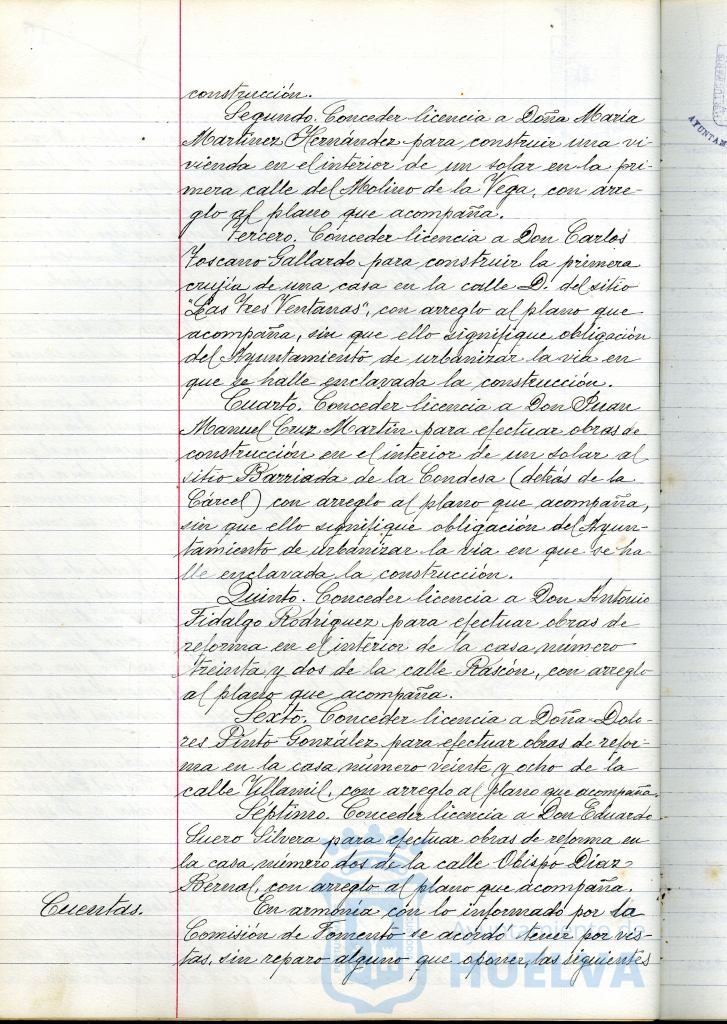 construcción.
Segundo. Conceder licencia a Doña María
Martínez Hernández para construir una vi-
vienda en el interior de un solar en la pri-
mera calle del Molino de la Vega, con arre-
glo al plano que acompaña.
Tercero. Conceder licencia a Don Carlos
Toscano Gallardo para construir la primera
crujía de una casa en la calle D. del sitio
"Las Tres Ventanas", con arreglo al plano que
acompaña, sin que ello signifique obligación
del Ayuntamiento de urbanizar la vía en
que se halle enclavada la construcción.
Cuarto. Conceder licencia a Don Juan
Manuel Cruz Martín para efectuar obras de
construcción en el interior de un solar al
sitio Barriada de la Condesa (detrás de la
Cárcel) con arreglo al plano que acompaña,
sin que ello signifique obligación del Ayun-
tamiento de urbanizar la vía en que se ha-
lle enclavada la construcción.
Quinto. Conceder licencia a Don Antonio
Fidalgo Rodríguez para efectuar obras de
reforma en el interior de la casa número
treinta y dos de la calle Rascón, con arreglo
al plano que acompaña.
Sexto. Conceder licencia a Doña Dolo-
res Pinto González para efectuar obras de refor-
ma en la casa número veinte y ocho de la
calle Villamil, con arreglo al plano que acompaña.
Séptimo. Conceder licencia a Don Eduardo
Suero Silvera para efectuar obras de reforma en
la casa número dos de la calle Obispo Díaz
Bernal, con arreglo al plano que acompaña.
Cuentas. En armonía con lo informado por la
Comisión de Fomento se acordó tener por vis-
tas, sin reparo alguno que oponer, las siguientes
Ayuntamiento de
HUELVA
AYUNTAM